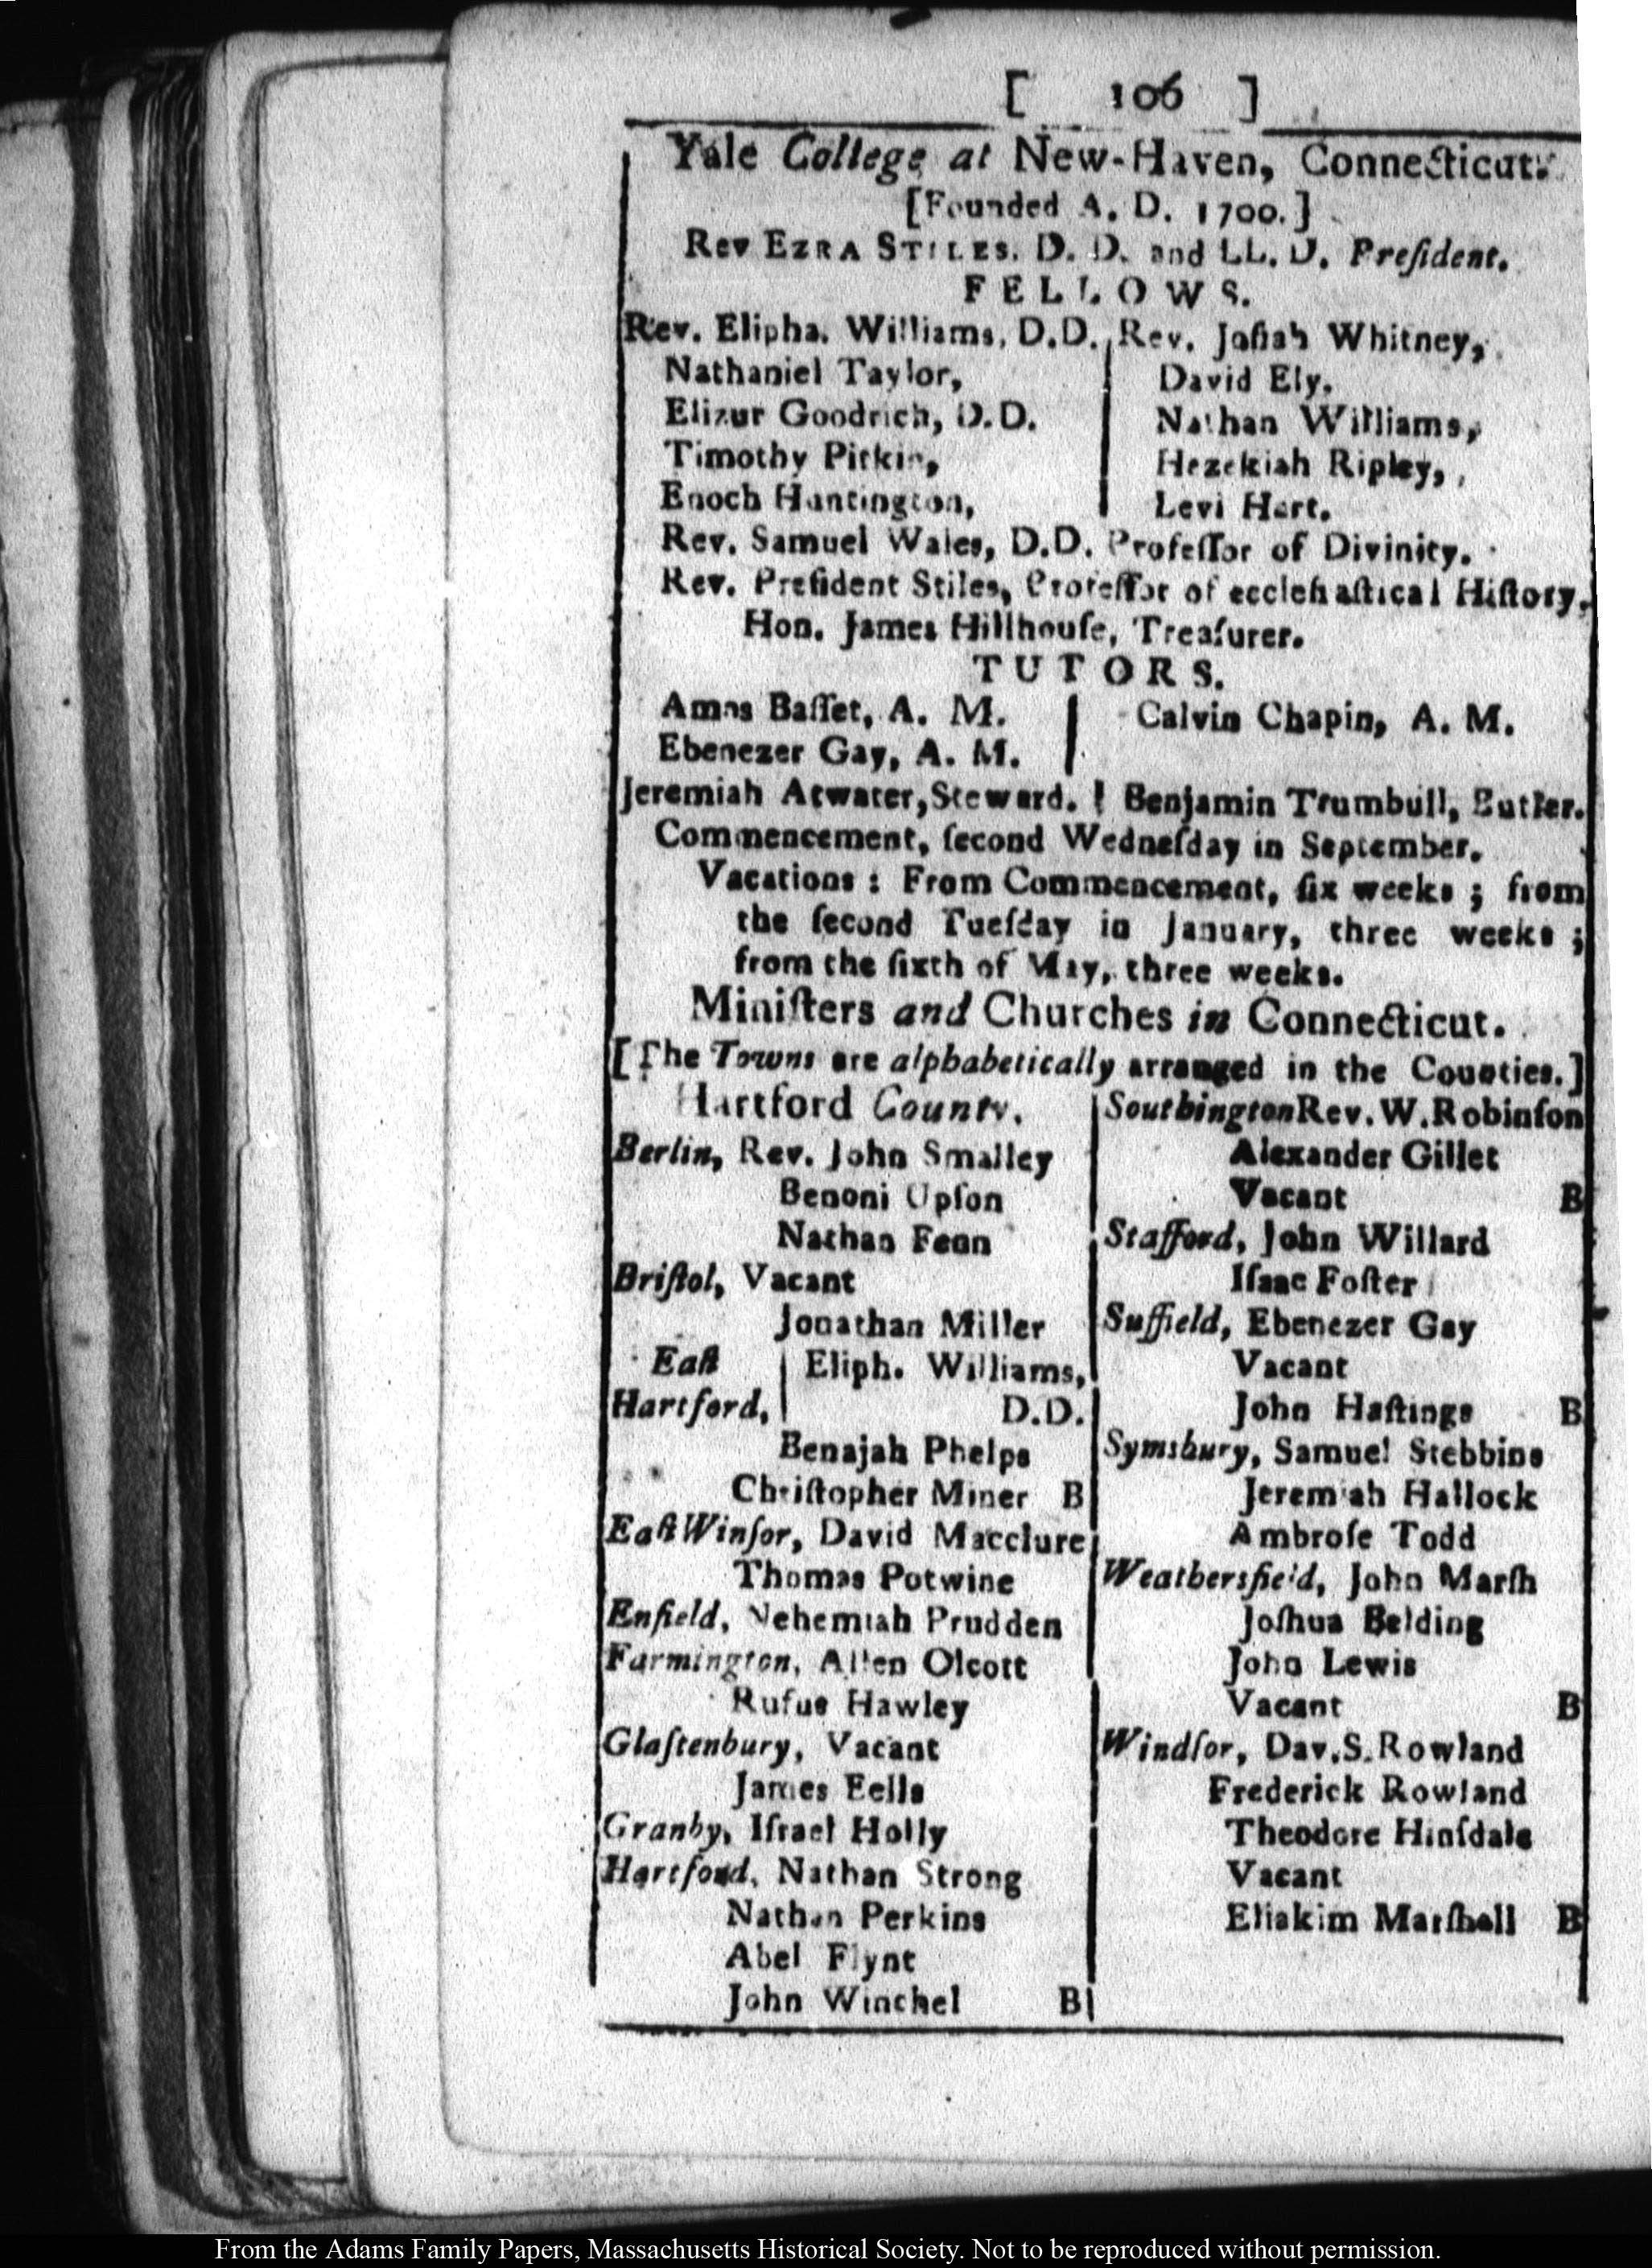 [ 106 ]
Yale College at New-Haven, Connecticut.
[Founded A. D. 1700.]
Rev EZRA STILES. D. D. and LL. D. Preſident.
FELLOWS.
Rev. Elipha. Williams, D.D.
Nathaniel Taylor,
Elizur Goodrich, D.D.
Timothy Pitkin,
Enoch Huntington,
Rev. Joſiah Whitney,
David Ely,
Nathan Williams,
Hezekiah Ripley,
Levi Hart.
Rev. Samuel Wales, D.D. Profeſſor of Divinity.
Rev. Preſident Stiles, Profeſſor of eccleſiaſtical Hiſtory.
Hon. James Hillhouſe, Treaſurer.
TUTORS.
Amos Baſſet, A. M.
Ebenezer Gay, A. M.
Calvin Chapin, A. M.
Jeremiah Atwater, Steward. | Benjamin Trumbull, Butler.
Commencement, ſecond Wedneſday in September.
Vacations : From Commencement, ſix weeks ; from
the ſecond Tueſday in January, three weeks ;
from the ſixth of May, three weeks.
Miniſters and Churches in Connecticut.
[The Towns are alphabetically arranged in the Counties.]
Hartford County.
Berlin, Rev. John Smalley
Benoni Upſon
Nathan Fenn
Briſtol, Vacant
Jonathan Miller
Eaſt Hartford, Eliph. Williams,
D.D.
Benajah Phelps
Chriſtopher Miner B
Eaſt Winſor, David Macclure
Thomas Potwine
Enfield, Nehemiah Prudden
Farmington, Allen Olcott
Rufus Hawley
Glaſtenbury, Vacant
James Eells
Granby, Iſrael Holly
Hartford, Nathan Strong
Nathan Perkins
Abel Flynt
John Winchel B
Southington Rev. W. Robinſon
Alexander Gillet
Vacant B
Stafford, John Willard
Iſaac Foſter
Suffield, Ebenezer Gay
Vacant
John Haſtings B
Symsbury, Samuel Stebbins
Jeremiah Hallock
Ambroſe Todd
Weathersfield, John Marſh
Joſhua Belding
John Lewis
Vacant B
Windſor, Dav. S. Rowland
Frederick Rowland
Theodore Hinſdale
Vacant
Eliakim Marſhall B
From the Adams Family Papers, Massachusetts Historical Society. Not to be reproduced without permission.